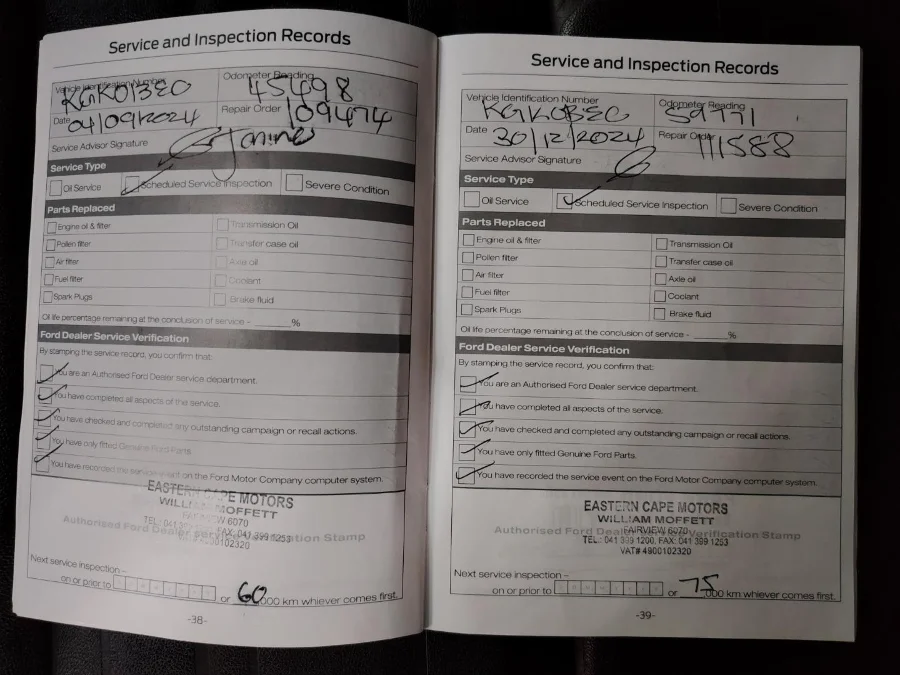 Service and Inspection Records
Vehicle Identification Number Odometer Reading
45498
Date 04/09/2024 Repair Order 109474
Service Advisor Signature
Service Type
Oil Service Scheduled Service Inspection Severe Condition
Parts Replaced
Engine oil & filter Transmission Oil
Pollen filter Transfer case oil
Air filter Axle oil
Fuel filter Coolant
Spark Plugs Brake fluid
Oil life percentage remaining at the conclusion of service - ______%
Ford Dealer Service Verification
By stamping the service record, you confirm that:
You are an Authorised Ford Dealer service department.
You have completed all aspects of the service.
You have checked and completed any outstanding campaign or recall actions.
You have only fitted Genuine Ford Parts.
You have recorded the service event on the Ford Motor Company computer system.
EASTERN CAPE MOTORS
WILLIAM MOFFETT
FAIRVIEW 6070
Authorised Ford Dealer Service Verification Stamp
FAX: 041 399 1253
Next service inspection –
on or prior to or 60,000 km whiever comes first.
-38-
Service and Inspection Records
Vehicle Identification Number Odometer Reading
59771
Date 30/12/2024 Repair Order 111588
Service Advisor Signature
Service Type
Oil Service Scheduled Service Inspection Severe Condition
Parts Replaced
Engine oil & filter Transmission Oil
Pollen filter Transfer case oil
Air filter Axle oil
Fuel filter Coolant
Spark Plugs Brake fluid
Oil life percentage remaining at the conclusion of service - ______%
Ford Dealer Service Verification
By stamping the service record, you confirm that:
You are an Authorised Ford Dealer service department.
You have completed all aspects of the service.
You have checked and completed any outstanding campaign or recall actions.
You have only fitted Genuine Ford Parts.
You have recorded the service event on the Ford Motor Company computer system.
EASTERN CAPE MOTORS
WILLIAM MOFFETT
FAIRVIEW 6070
Authorised Ford Dealer Service Verification Stamp
TEL: 041 399 1200, FAX: 041 399 1253
VAT# 4900102320
Next service inspection –
on or prior to or 75,000 km whiever comes first.
-39-